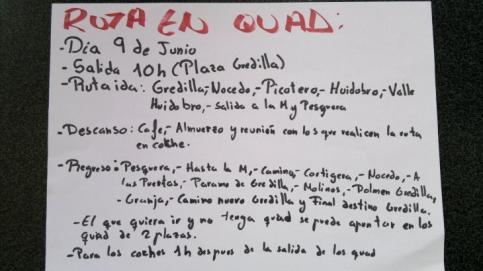 RUTA EN QUAD:
- Dia 9 de Junio
- Salida 10h (Plaza Gredilla)
- Ruta ida: Gredilla,- Nocedo,- Picotero,- Huidobro,- Valle
Huidobro,- Salida a la M y Pesquera
- Descanso: Cafe,- Almuerzo y reunión con los que realicen la ruta
en coche.
- Regreso: Pesquera,- Hasta la M,- Camino,- Cortigera,- Nocedo,- A
las Puertas,- Paramo de Gredilla,- Molinos,- Dolmen Gredilla,
- Granja,- Camino nuevo Gredilla y Final destino Gredilla.
- El que quiera ir y no tenga quad se puede apuntar en los
quad de 2 plazas.
- Para los coches 1h despues de la salida de los quad